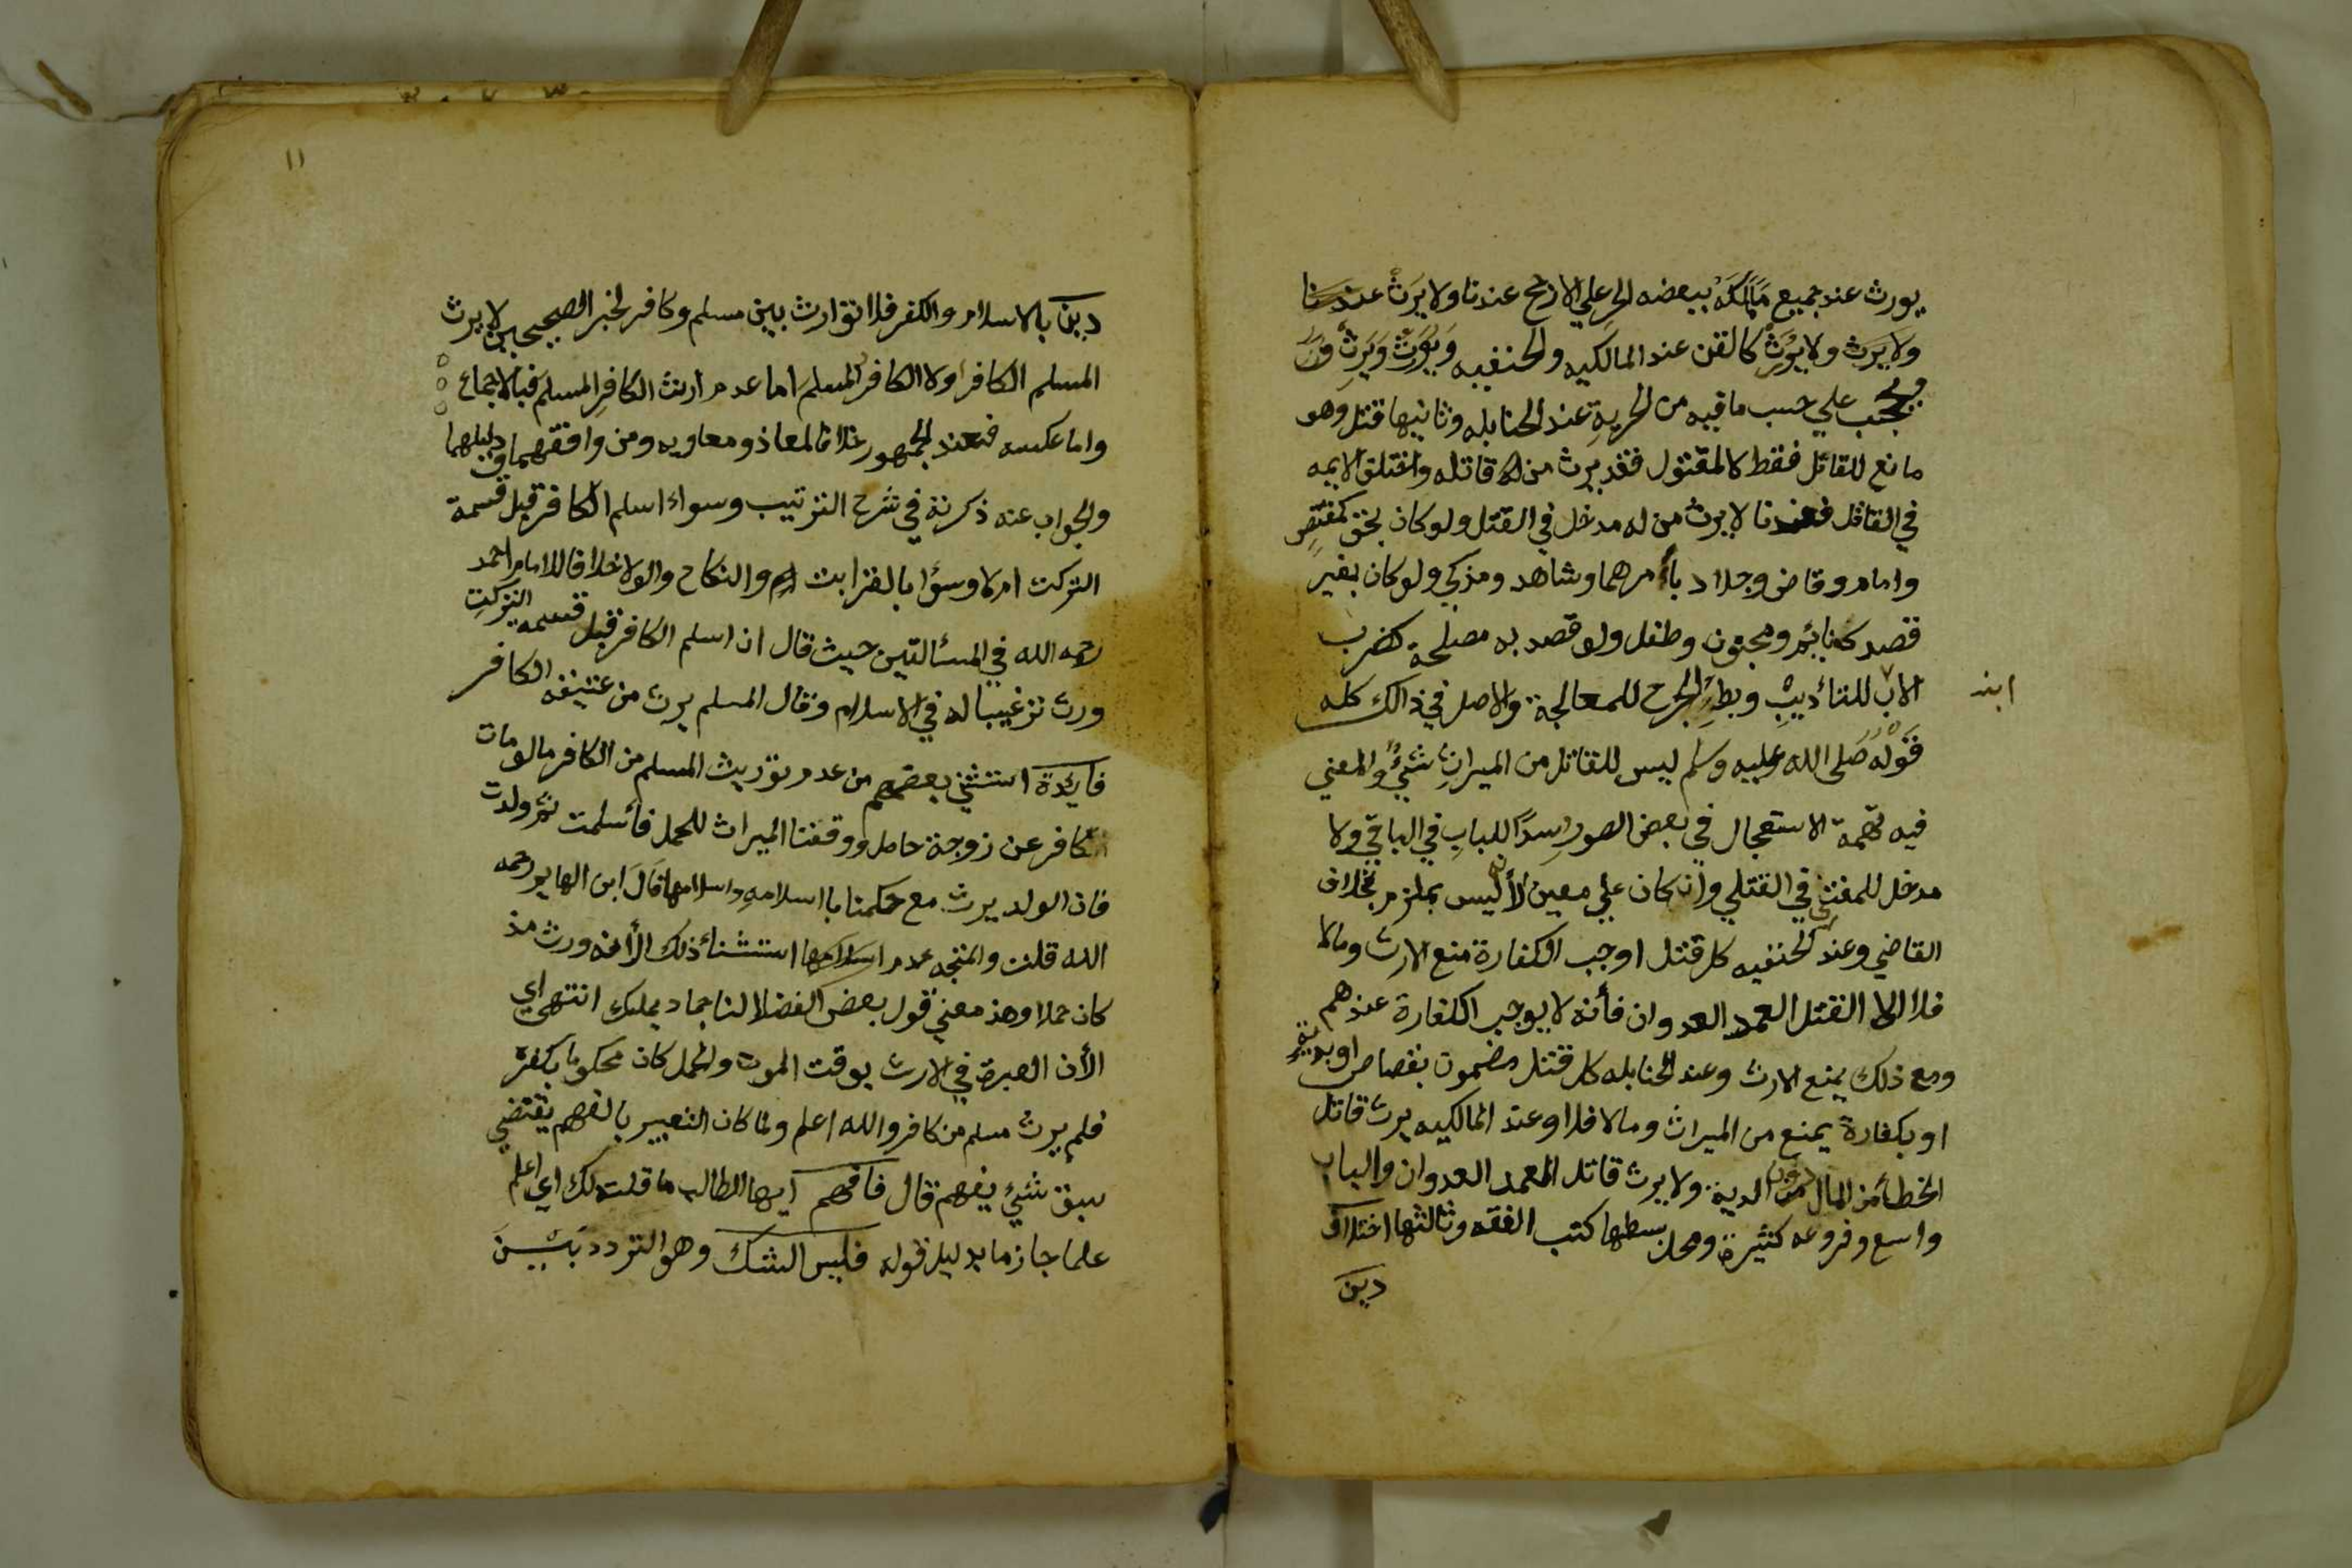 يورث عند جميع ماملكه ببعضه الحر علي الارجح عندنا ولا يرث عندنا
ولا يرث ولا يورث كالقن عند المالكيه والحنفيه ويورث ويرث
ويحجب علي حسب مافيه من الحرية عند الحنابله وثانيها قتل وهو
مانع للقاتل فقط لا المقتول فقد يرث من قاتله واختلق الايمه
في القاتل فعندنا لا يرث من له مدخل في القتل ولو كان بحق كمقتص
وامام وقاض وجلاد بأمرهما وشاهد ومذكي ولو كان بغير
قصد كنائم ومجنون وطفل ولو قصد به مصلحة كضرب
الاب للتأديب وبط الجرح للمعالجة والاصل في ذالك كله
ابنه
قوله صلى الله عليه وسلم ليس للقاتل من الميراث شيئ والمعني
فيه تهمة الاستعجال في بعض الصور سدا للباب في الباقي ولا
مدخل للمفتي في القتلي وان كان علي معين لأنه ليس بملزم بخلاف
القاضي وعند الحنفيه كل قتل اوجب الكفارة منع الارث ومالا
فلا الا القتل العمد العدوان فأنه لا يوجب الكفارة عندهم
ومع ذلك يمنع الارث وعند الحنابله كل قتل مضمون بقصاص او بدية
او بكفارة يمنع من الميراث ومالا فلا وعند المالكيه يرث قاتل
الخطأ من المال دون الدية ولا يرث قاتل العمد العدوان والباب
واسع وفروعه كثيرة ومحل بسطها كتب الفقه وثالثها اختلاف
دين
١١
دين بالاسلام والكفر فلا توارث بين مسلم وكافر لخبر الصحيحين لا يرث
المسلم الكافر ولا الكافر المسلم اما عدم ارث الكافر المسلم فبالاجماع
واما عكسه فعند الجمهور خلافا لمعاذ ومعاويه ومن وافقهما ودليلهما
والجواب عنه ذكرته في شرح الترتيب وسواء اسلم الكافر قبل قسمة
التركت ام لا وسؤا بالقرابت ام والنكاح والولا خلافا للامام احمد
رحمه الله في المسألتين حيث قال ان اسلم الكافر قبل قسمه التركت
ورث ترغيبا له في الاسلام وقال المسلم يرث من عتيقه الكافر
فايدة استثني بعضهم من عدم توريث المسلم من الكافر مالو مات
كافر عن زوجة حامل ووقفنا الميراث للحمل فأسلمت ثم ولدت
فان الولد يرث مع حكمنا باسلامه واسلامها قال ابن الهايم رحمه
الله قلت والمتجه عدم استثناء ذلك لأنه ورث مذ
كان حملا وهذ معني قول بعض الفضلا لنا جماد يملك انتهي اي
الأن العبرة في الارث بوقت الموت والحمل كان محكوما بكفره
فلم يرث مسلم من كافر والله اعلم ولما كان التعبير بالفهم يقتضي
سبق شيئ يفهم قال فافهم ايها الطالب ما قلت لك اي اعلم
علما جازما بدليل قوله فليس الشك وهو التردد بين